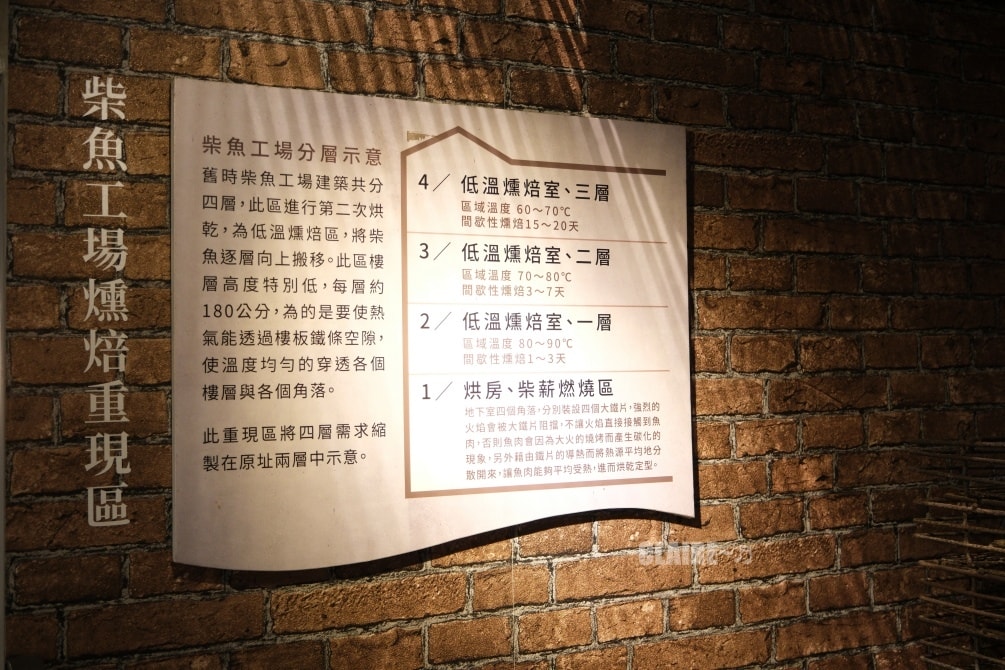 柴魚工場燻焙重現區
柴魚工場分層示意
舊時柴魚工場建築共分
四層，此區進行第二次烘
乾，為低溫燻焙區，將柴
魚逐層向上搬移。此區樓
層高度特別低，每層約
180公分，為的是要使熱
氣能透過樓板鐵條空隙，
使溫度均勻的穿透各個
樓層與各個角落。
此重現區將四層需求縮
製在原址兩層中示意。
4／ 低溫燻焙室、三層
區域溫度 60～70℃
間歇性燻焙15～20天
3／ 低溫燻焙室、二層
區域溫度 70～80℃
間歇性燻焙3～7天
2／ 低溫燻焙室、一層
區域溫度 80～90℃
間歇性燻焙1～3天
1／ 烘房、柴薪燃燒區
地下室四個角落，分別裝設四個大鐵片，強烈的
火焰會被大鐵片阻擋，不讓火焰直接接觸到魚
肉，否則魚肉會因為大火的燒烤而產生碳化的
現象，另外藉由鐵片的導熱而將熱源平均地分
散開來，讓魚肉能夠平均受熱，進而烘乾定型。